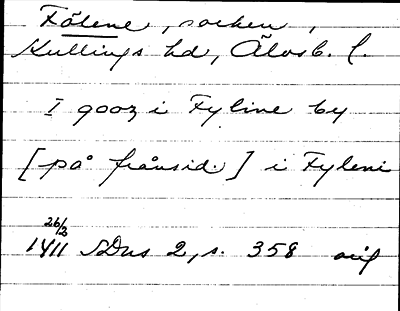 Fölene, socken,
Kullings hd, Älvsb. l.
I gooz i Fyline by
[på frånsid.] i Fyleni
26/3
1411 SDns 2, s. 358 orig